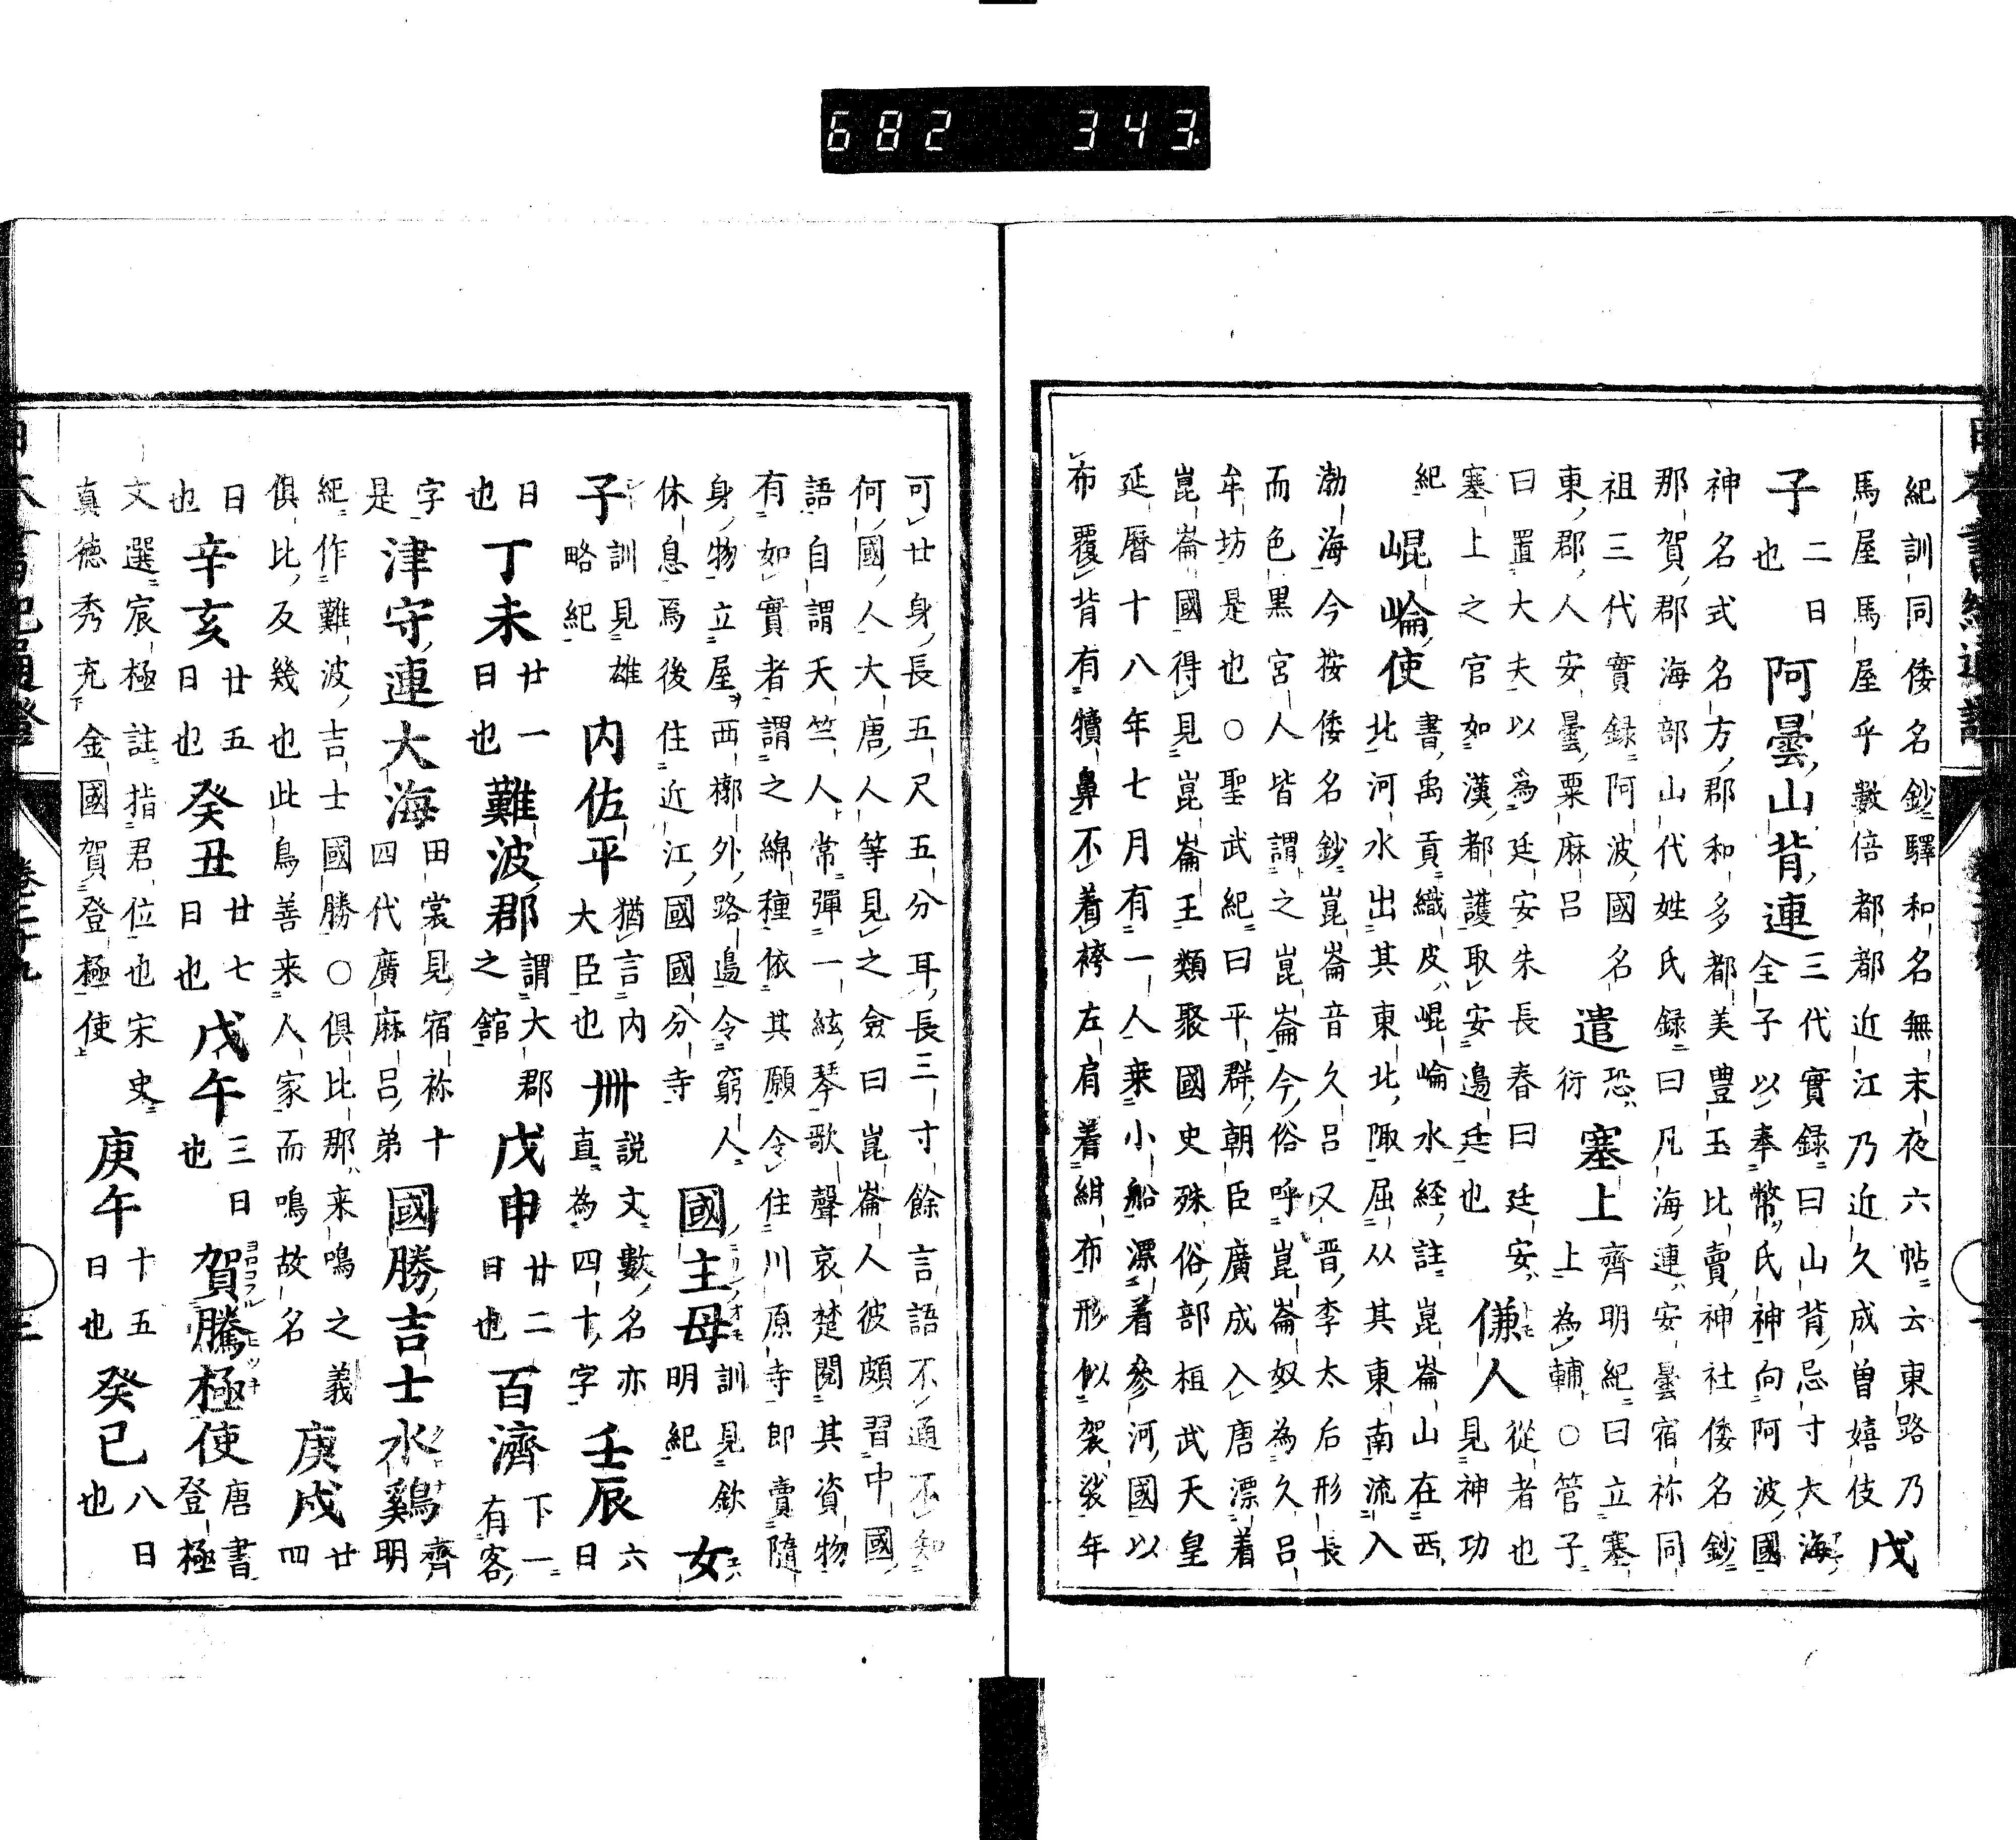 682 343
紀訓同倭名鈔驛和名無末夜六帖云東路乃
馬屋馬屋乎數倍都都近江乃近久成曽嬉伎 戊
子 二日也 阿曇山背連 三代實録曰山背忌寸大海
全子以奉幣氏神向阿波國
神名式名方郡和多都美豊玉比賣神社倭名鈔
那賀郡海部山代姓氏録曰凡海連安曇宿祢同
祖三代實録阿波國名
東郡人安曇粟麻呂 遣 恐衍 塞上 齊明紀曰立塞
上為輔○管子
曰置大夫以為廷安安朱長春曰廷安
塞上之官如漢都護取安邉廷也 傔人 從者也
見神功
紀 崐崘使 書禹貢織皮崐崘水経註崑崙山在西
北河水出其東北陬屈从其東南流入
渤海今按倭名鈔崑崙音久呂又晋李太后形長
而色黒宮人皆謂之崑崙今俗呼崑崙奴為久呂
牟坊是也○聖武紀曰平群朝臣廣成入唐漂着
崑崙國得見崑崙王類聚國史殊俗部桓武天皇
延暦十八年七月有一人乗小船漂着參河國以
布覆背有犢鼻不着袴左肩着紺布形似袈裟年
可廿身長五尺五分耳長三寸餘言語不通不知
何國人大唐人等見之僉曰崑崙人彼頗習中國
語自謂天竺人常彈一絃琴歌聲哀楚閲其資物
有如實者謂之綿種依其願令住川原寺即賣隨
身物立屋西槨外路邉令窮人
休息焉後住近江國國分寺 國主母 訓見欽
明紀 女
子 訓見雄
略紀 内佐平 猶言内
大臣也 卌 説文數名亦
直為四十字 壬辰 六
日
日
也 丁未 廿一
日也 難波郡 謂大郡
之館 戊申 廿二
日也 百濟 下一
有客
字 津守連大海 田裳見宿祢十
四代廣麻呂弟
是 國勝吉士水鷄 齊
明
紀作難波吉士國勝○俱比那来鳴之義
俱比反幾也此鳥善来人家而鳴故名 庚戌 廿
四
日
也 辛亥 廿五
日也 癸丑 廿七
日也 戊午 三日
也 賀騰極使 唐書
登極
文選宸極註指君位也宋史
真徳秀充金國賀登極使 庚午 十五
日也 癸巳 八日
也